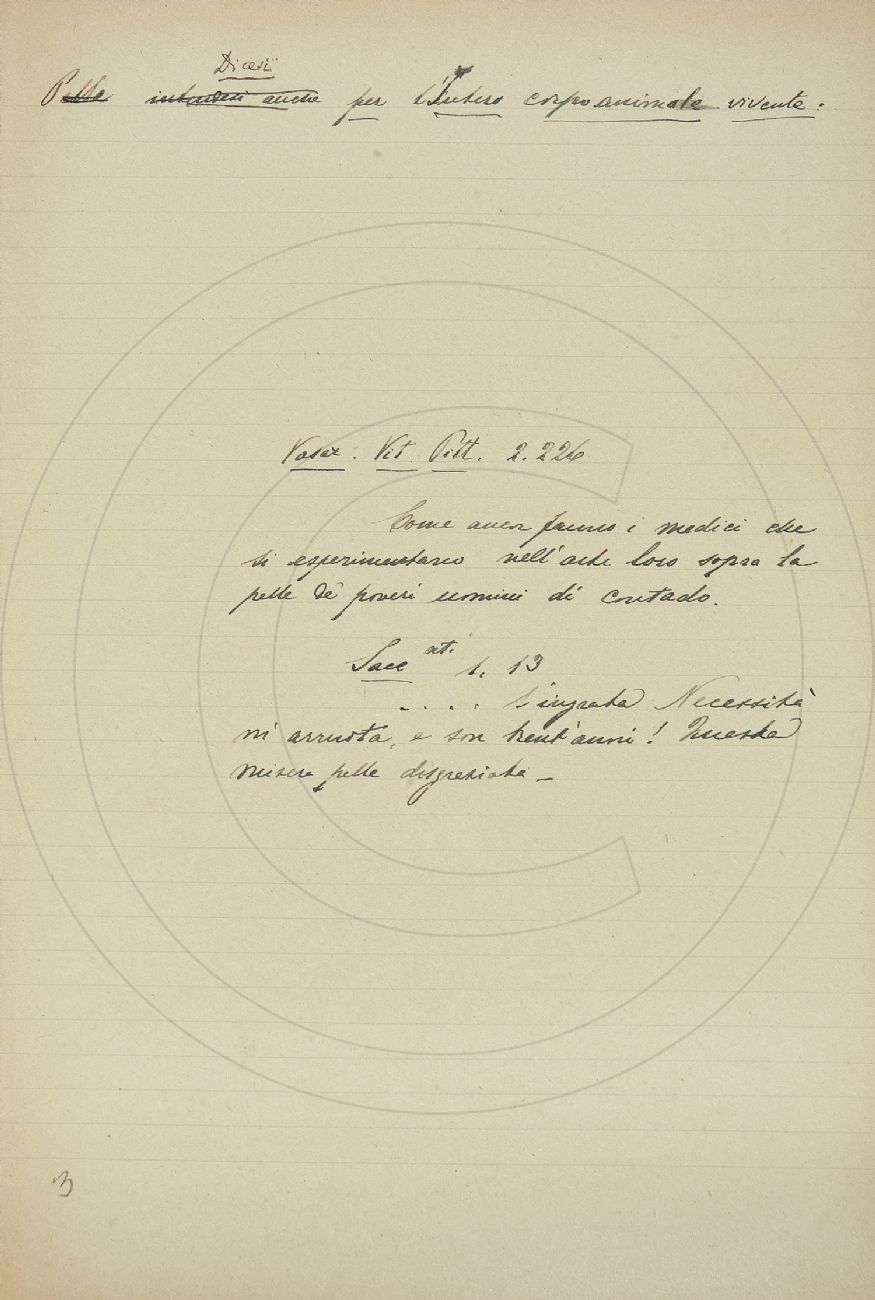 Dicesi
Pelle intendesi anche per l'Intero corpo animale vivente.
Vasar. Vit Pitt. 2.226
Come ancor fanno i medici che
si esperimentano nell'arte loro sopra la
pelle de' poveri uomini di contado.
Sacc att. 1. 13
.... L'ingrata Necessità
m'arruota, e son trent'anni! Questa
misera pelle disgraziata _
3